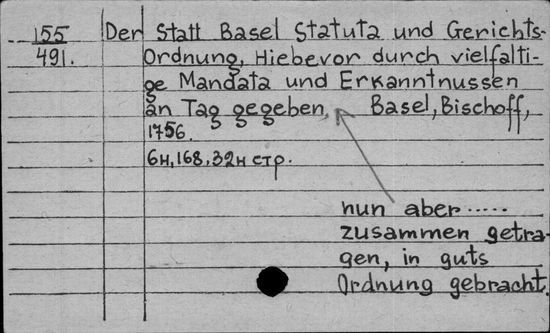 155
491.
Der Statt Basel Statuta und Gerichts-
Ordnung, Hiebevor durch vielfalti-
ge Mandata und Erkanntnussen
an Tag gegeben, Basel, Bischoff,
1756.
6н, 168, 32н стр.
nun aber .....
zusammen getra-
gen, in guts
Ordnung gebracht.